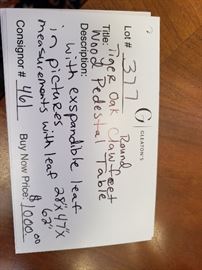 G
GLEATON'S
Lot# 377
Title: Tiger Oak Clawfeet Round
Wood Pedestal Table
Description:
with exspandible leaf
in pictures
measurements with leaf 28"x47"x
62"
Consignor # 461 Buy Now Price: $1000.00